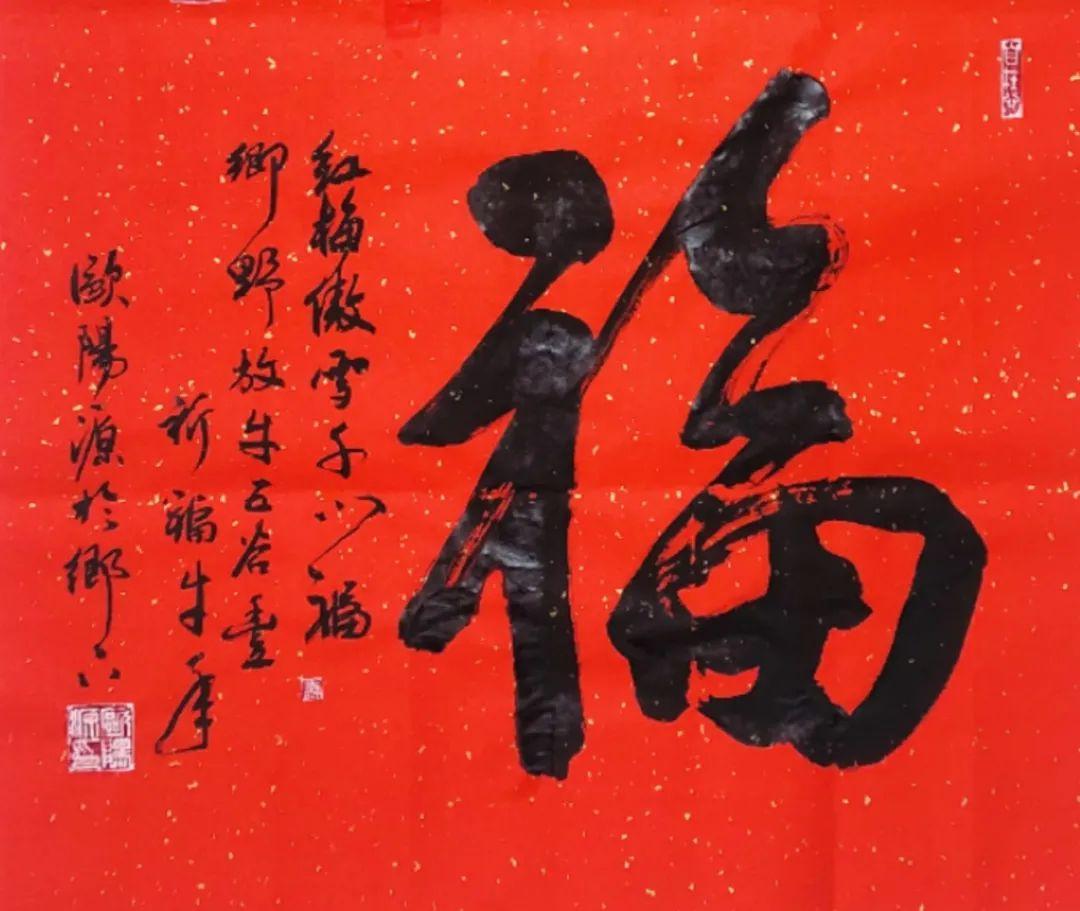 福
紅梅傲雪千福
鄉野放牛五谷豐
祈福牛年
歐陽源於鄉下
歐陽源印